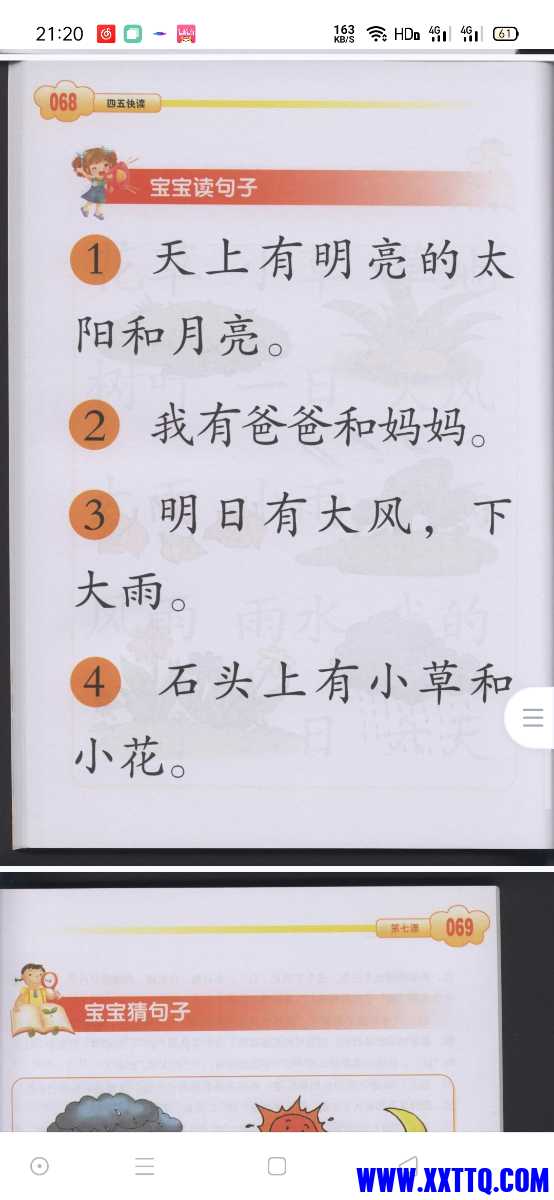 21:20
163 KB/S HD 4G 4G 61
068 四五快读
宝宝读句子
1 天上有明亮的太
阳和月亮。
2 我有爸爸和妈妈。
3 明日有大风，下
大雨。
4 石头上有小草和
小花。
第七课 069
宝宝猜句子
WWW.XXTTQ.COM